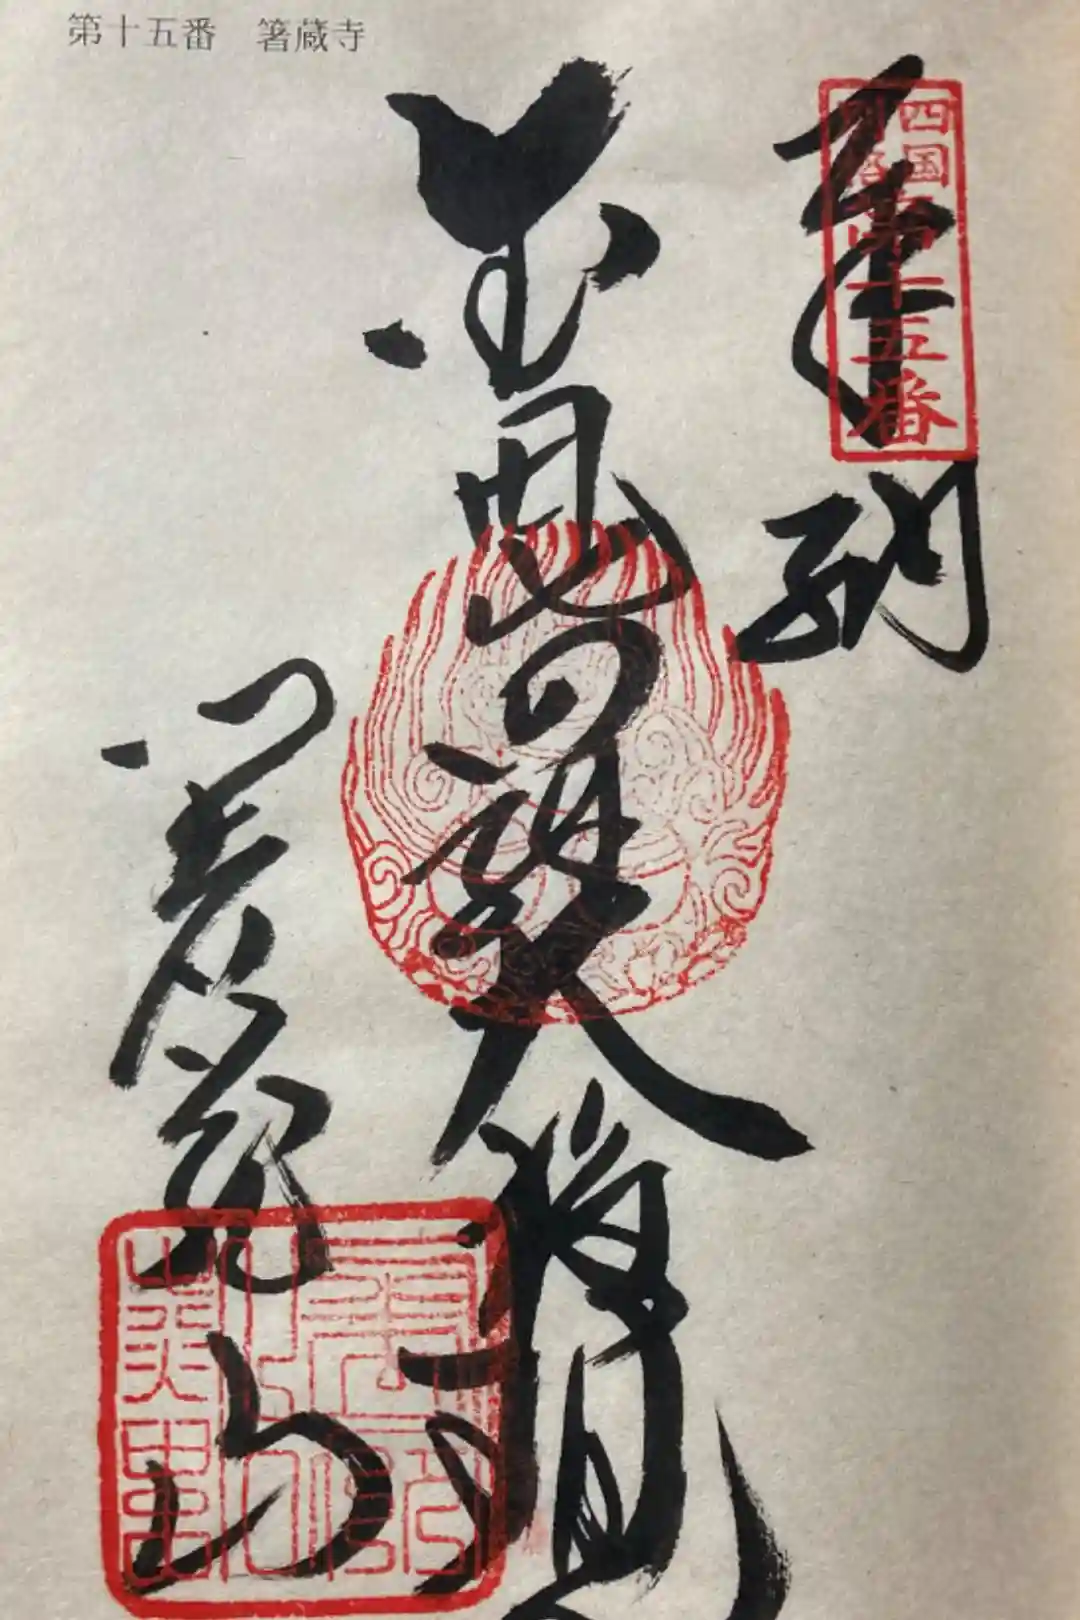 第十五番　箸蔵寺
四国
別格
第十五番
奉納
金毘羅大権現
箸蔵山